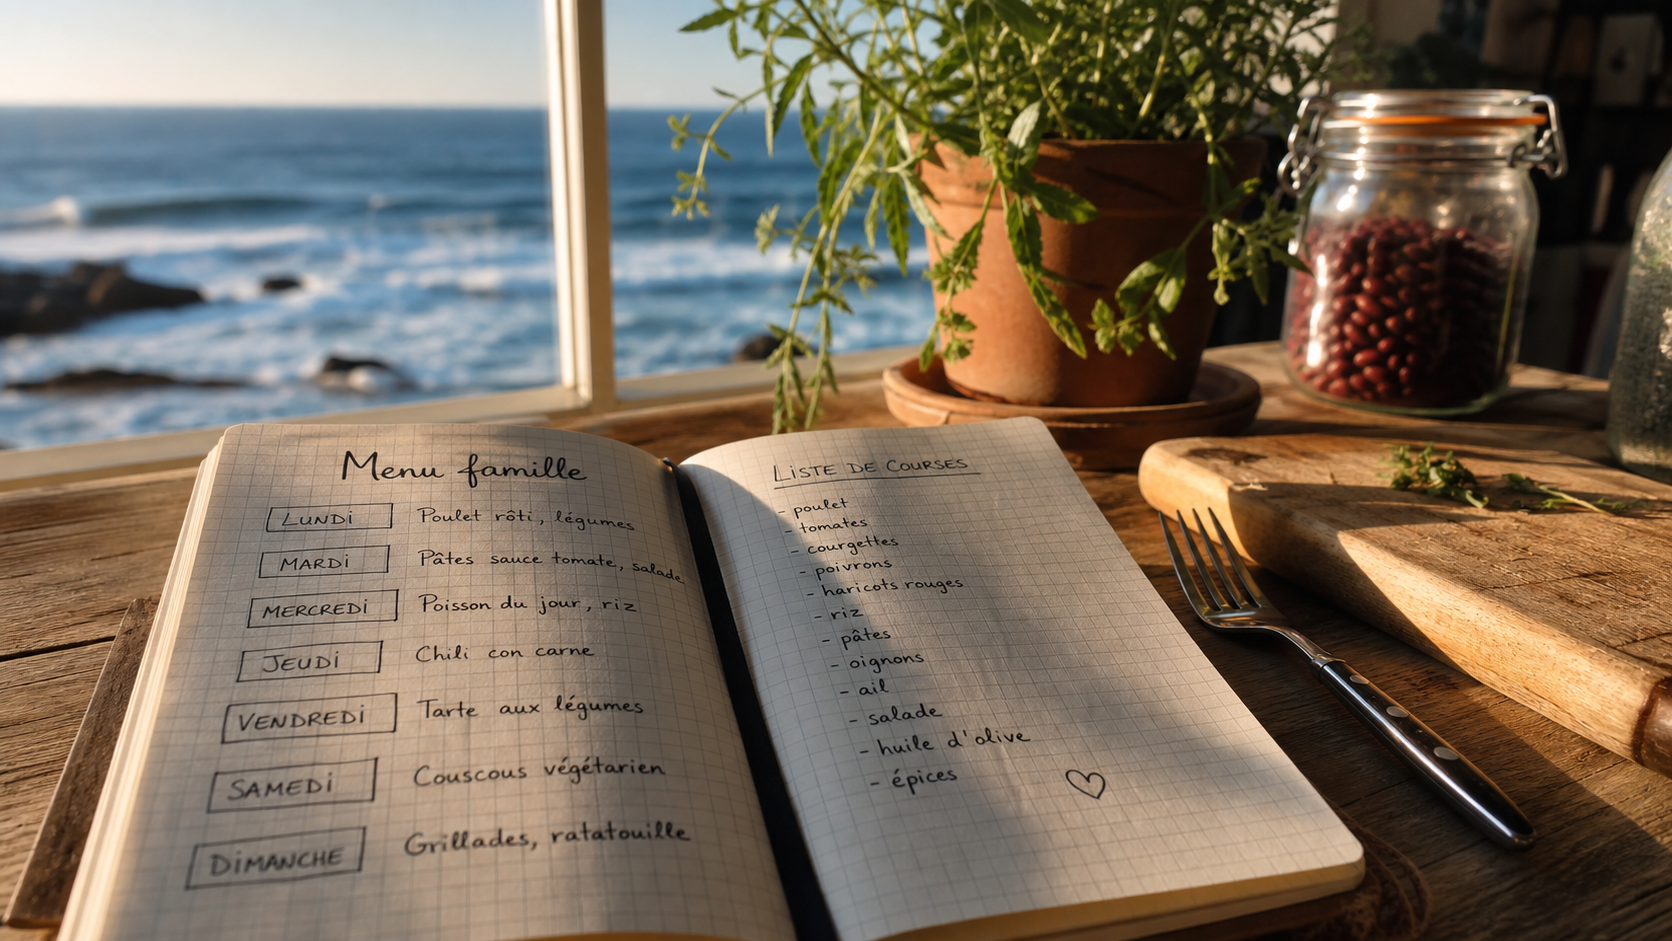 Menu famille
LUNDI Poulet rôti, légumes
MARDI Pâtes sauce tomate, salade
MERCREDI Poisson du jour, riz
JEUDI Chili con carne
VENDREDI Tarte aux légumes
SAMEDI Couscous végétarien
DIMANCHE Grillades, ratatouille
LISTE DE COURSES
- poulet
- tomates
- courgettes
- poivrons
- haricots rouges
- riz
- pâtes
- oignons
- ail
- salade
- huile d'olive
- épices